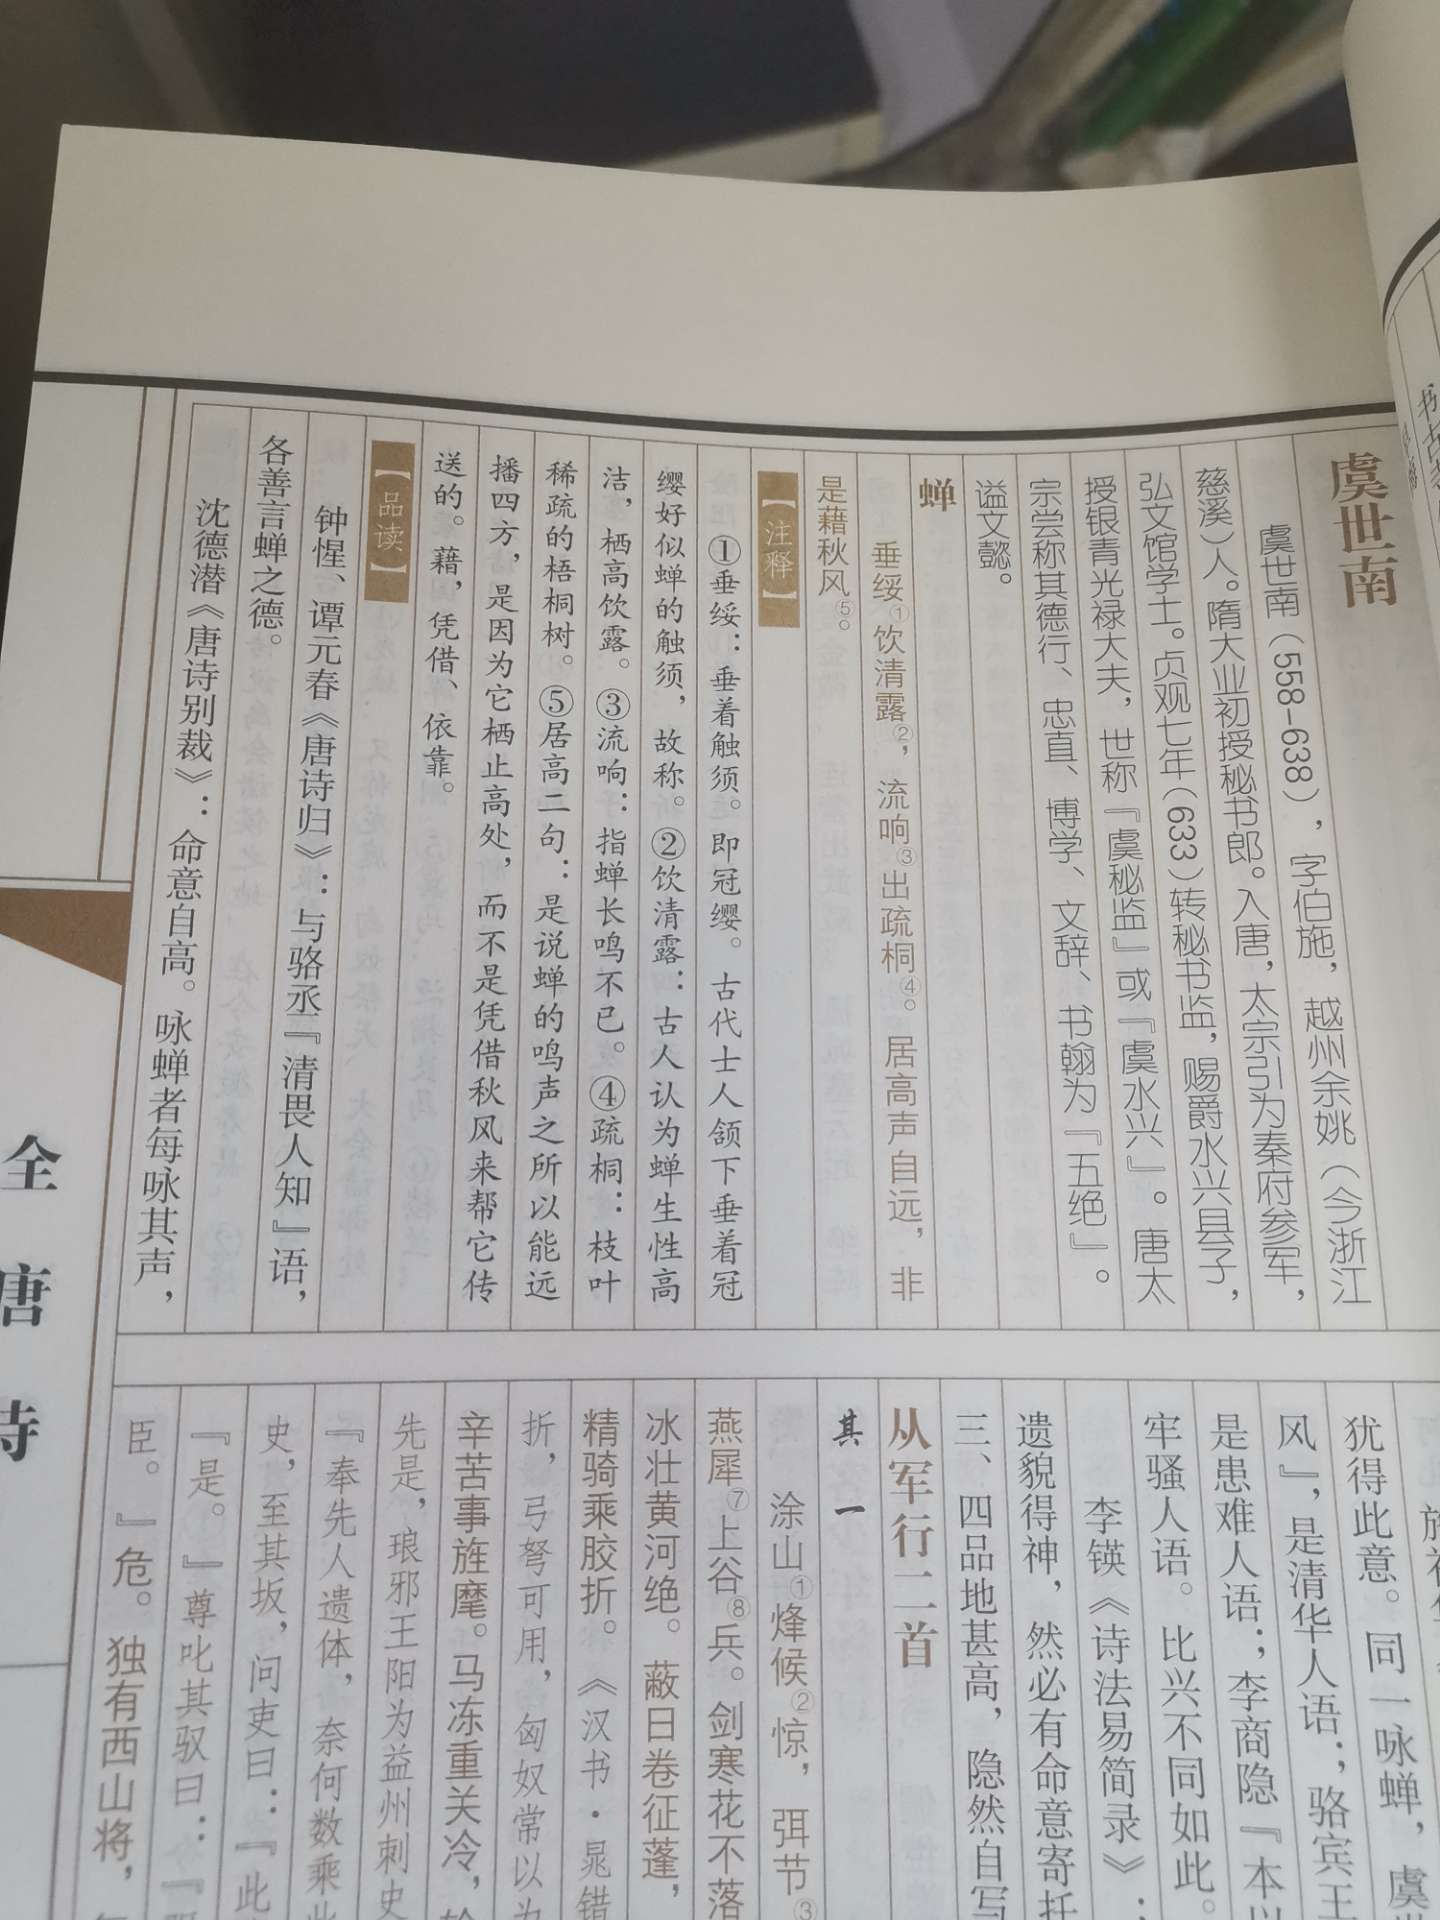 虞世南
虞世南（558-638），字伯施，越州余姚（今浙江
慈溪）人。隋大业初授秘书郎。入唐，太宗引为秦府参军，
弘文馆学士。贞观七年（633）转秘书监，赐爵水兴县子，
授银青光禄大夫，世称『虞秘监』或『虞水兴』。唐太
宗尝称其德行、忠直、博学、文辞、书翰为『五绝』。
谥文懿。
蝉
垂绥①饮清露②，流响③出疏桐④。居高声自远，非
是藉秋风⑤。
【注释】
①垂绥：垂着触须。即冠缨。古代士人颔下垂着冠
缨好似蝉的触须，故称。②饮清露：古人认为蝉生性高
洁，栖高饮露。③流响：指蝉长鸣不已。④疏桐：枝叶
稀疏的梧桐树。⑤居高二句：是说蝉的鸣声之所以能远
播四方，是因为它栖止高处，而不是凭借秋风来帮它传
送的。藉，凭借、依靠。
【品读】
钟惺、谭元春《唐诗归》：与骆丞『清畏人知』语，
各善言蝉之德。
沈德潜《唐诗别裁》：命意自高。咏蝉者每咏其声，
犹得此意。同一咏蝉，虞
风』，是清华人语；骆宾王
是患难人语；李商隐『本以
牢骚人语。比兴不同如此。
李锳《诗法易简录》：
遗貌得神，然必有命意寄托
三、四品地甚高，隐然自写
从军行二首
其一
涂山①烽候②惊，弭节③
燕犀⑦上谷⑧兵。剑寒花不落
冰壮黄河绝。蔽日卷征蓬，
精骑乘胶折。《汉书·晁错
折，弓弩可用，匈奴常以为
辛苦事旌麾。马冻重关冷，
先是，琅邪王阳为益州刺史
『奉先人遗体，奈何数乘此
史，至其坂，问吏曰：『此
『是。』尊叱其驭曰：『
臣。』危。独有西山将，
全唐诗